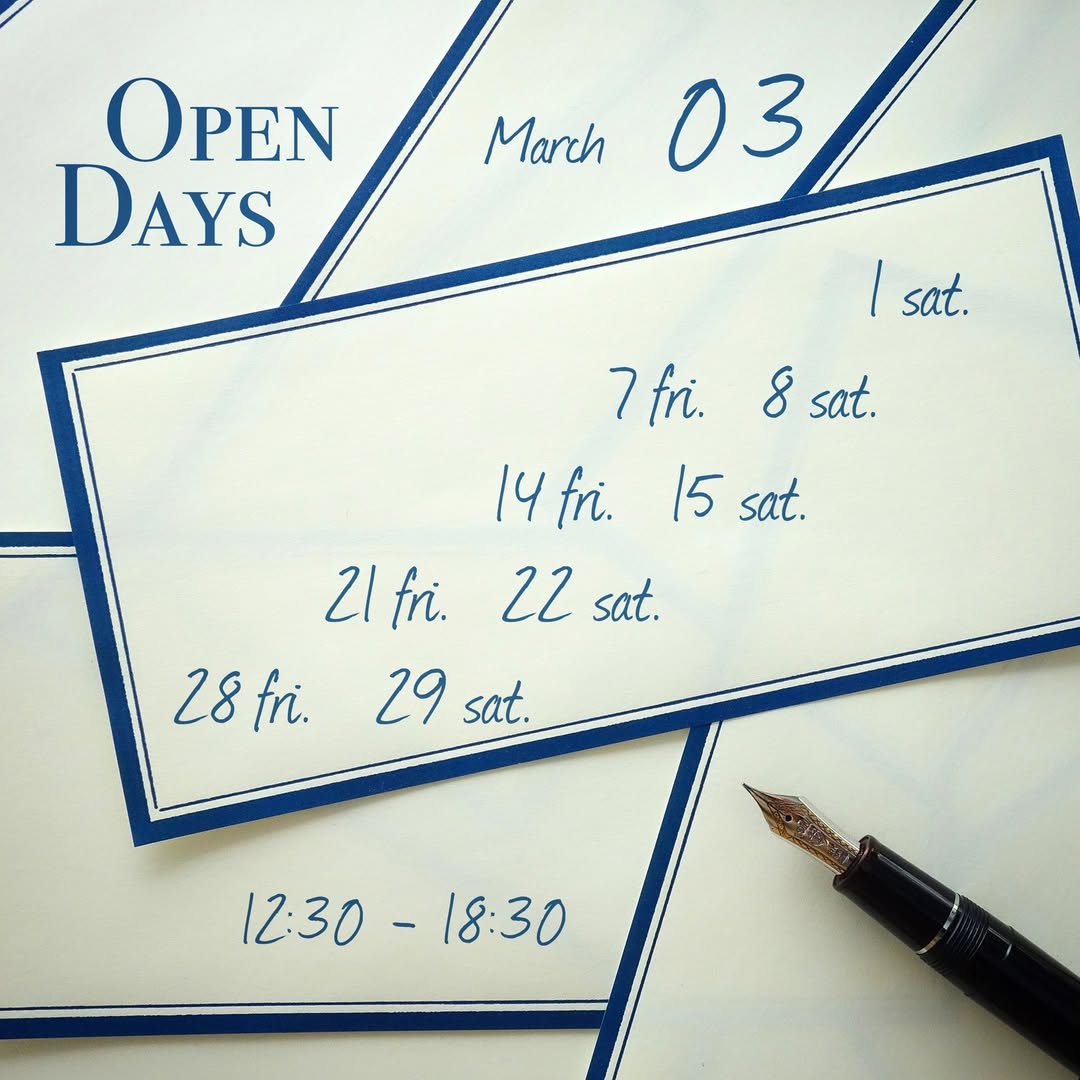 OPEN
DAYS
March 03
1 sat.
7 fri. 8 sat.
14 fri. 15 sat.
21 fri. 22 sat.
28 fri. 29 sat.
12:30 - 18:30